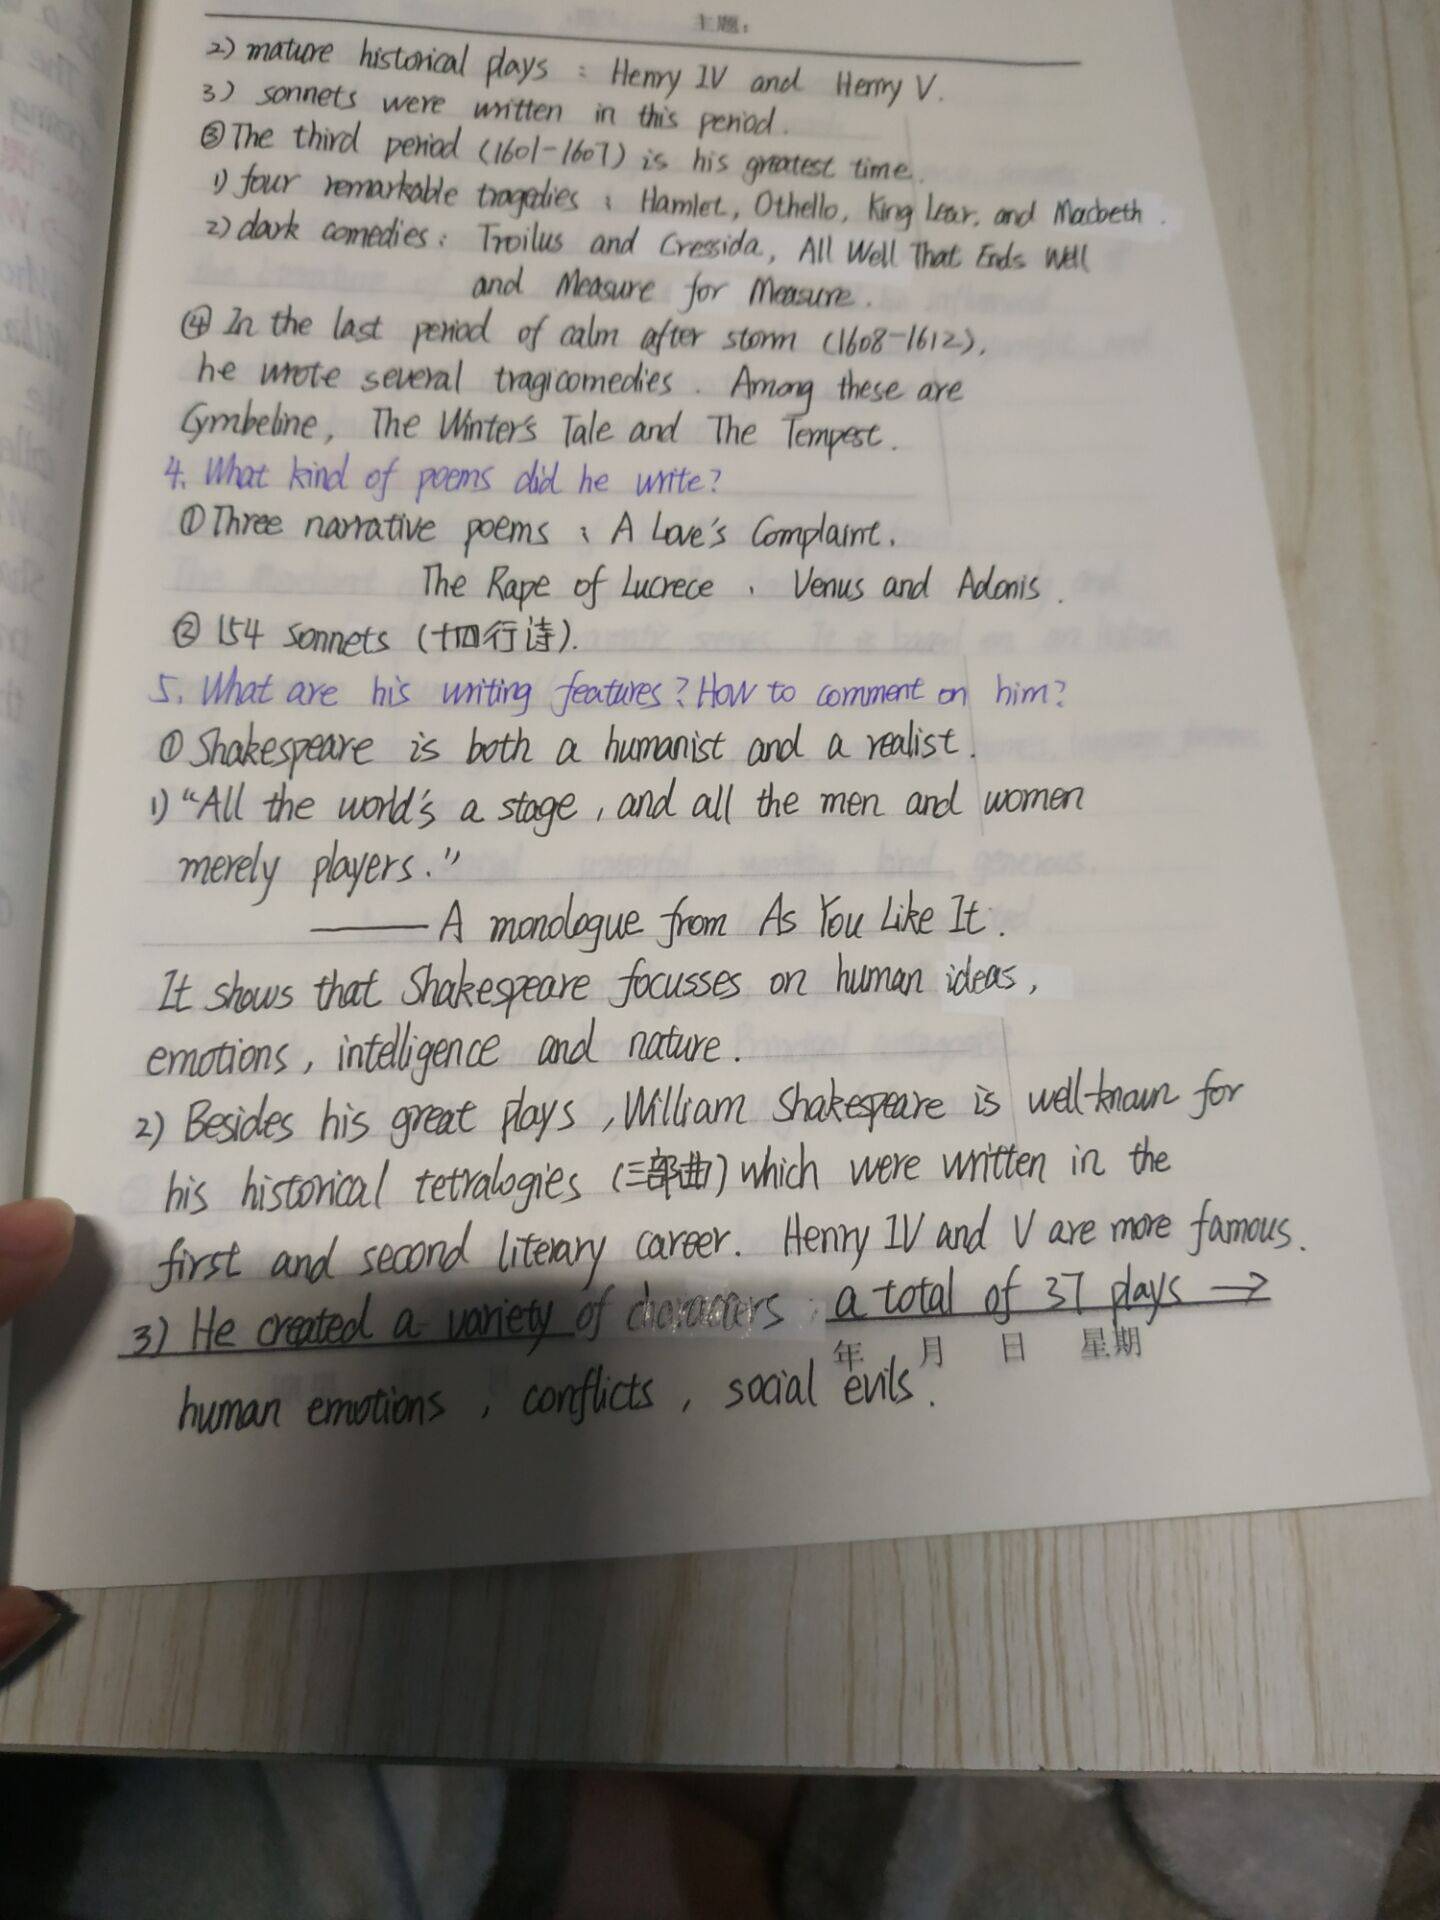 主题:
2) mature historical plays : Henry IV and Henry V.
3) sonnets were written in this period.
③ The third period (1601-1607) is his greatest time.
1) four remarkable tragedies : Hamlet, Othello, King Lear, and Macbeth.
2) dark comedies : Troilus and Cressida, All Well That Ends Well
and Measure for Measure.
④ In the last period of calm after storm (1608-1612),
he wrote several tragicomedies. Among these are
Cymbeline, The Winter's Tale and The Tempest.
4. What kind of poems did he write?
① Three narrative poems : A Love's Complaint,
The Rape of Lucrece, Venus and Adonis.
② 154 sonnets (十四行诗).
5. What are his writing features? How to comment on him?
① Shakespeare is both a humanist and a realist.
1) "All the world's a stage, and all the men and women
merely players."
—— A monologue from As You Like It.
It shows that Shakespeare focusses on human ideas,
emotions, intelligence and nature.
2) Besides his great plays, William Shakespeare is well-known for
his historical tetralogies (三部曲) which were written in the
first and second literary career. Henry IV and V are more famous.
3) He created a variety of characters : a total of 37 plays →
年 月 日 星期
human emotions, conflicts, social evils.